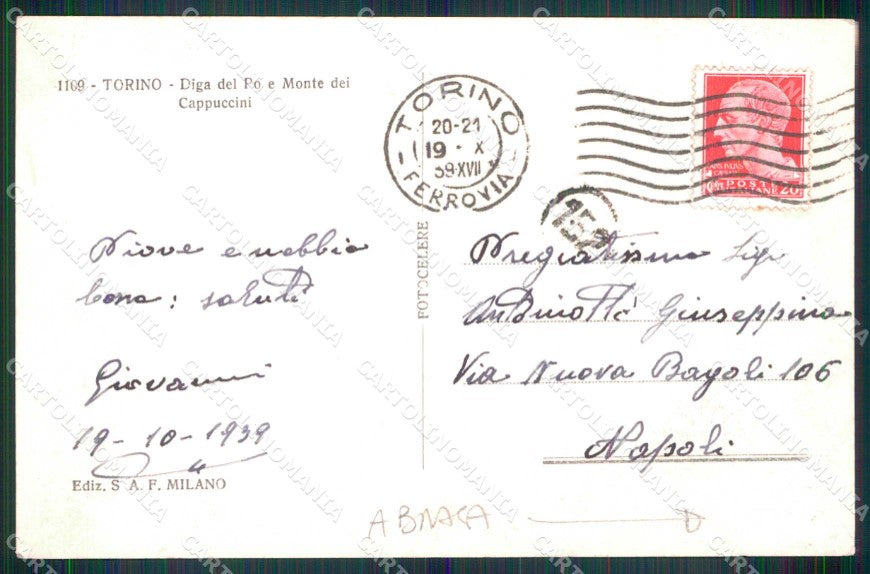 1169 - TORINO - Diga del Po e Monte dei
Cappuccini
TORINO
20-21
19 · X
39·XVII
FERROVIA
POSTE
ITALIANE 20
152
FOTOCELERE
Piove e nebbia
bene: saluti
Giovanni
19-10-1939
Pregiatissima Sig.
Antinotti Giuseppina
Via Nuova Bagoli 106
Napoli
Ediz. S A. F. MILANO
CARTOLINOMANIA